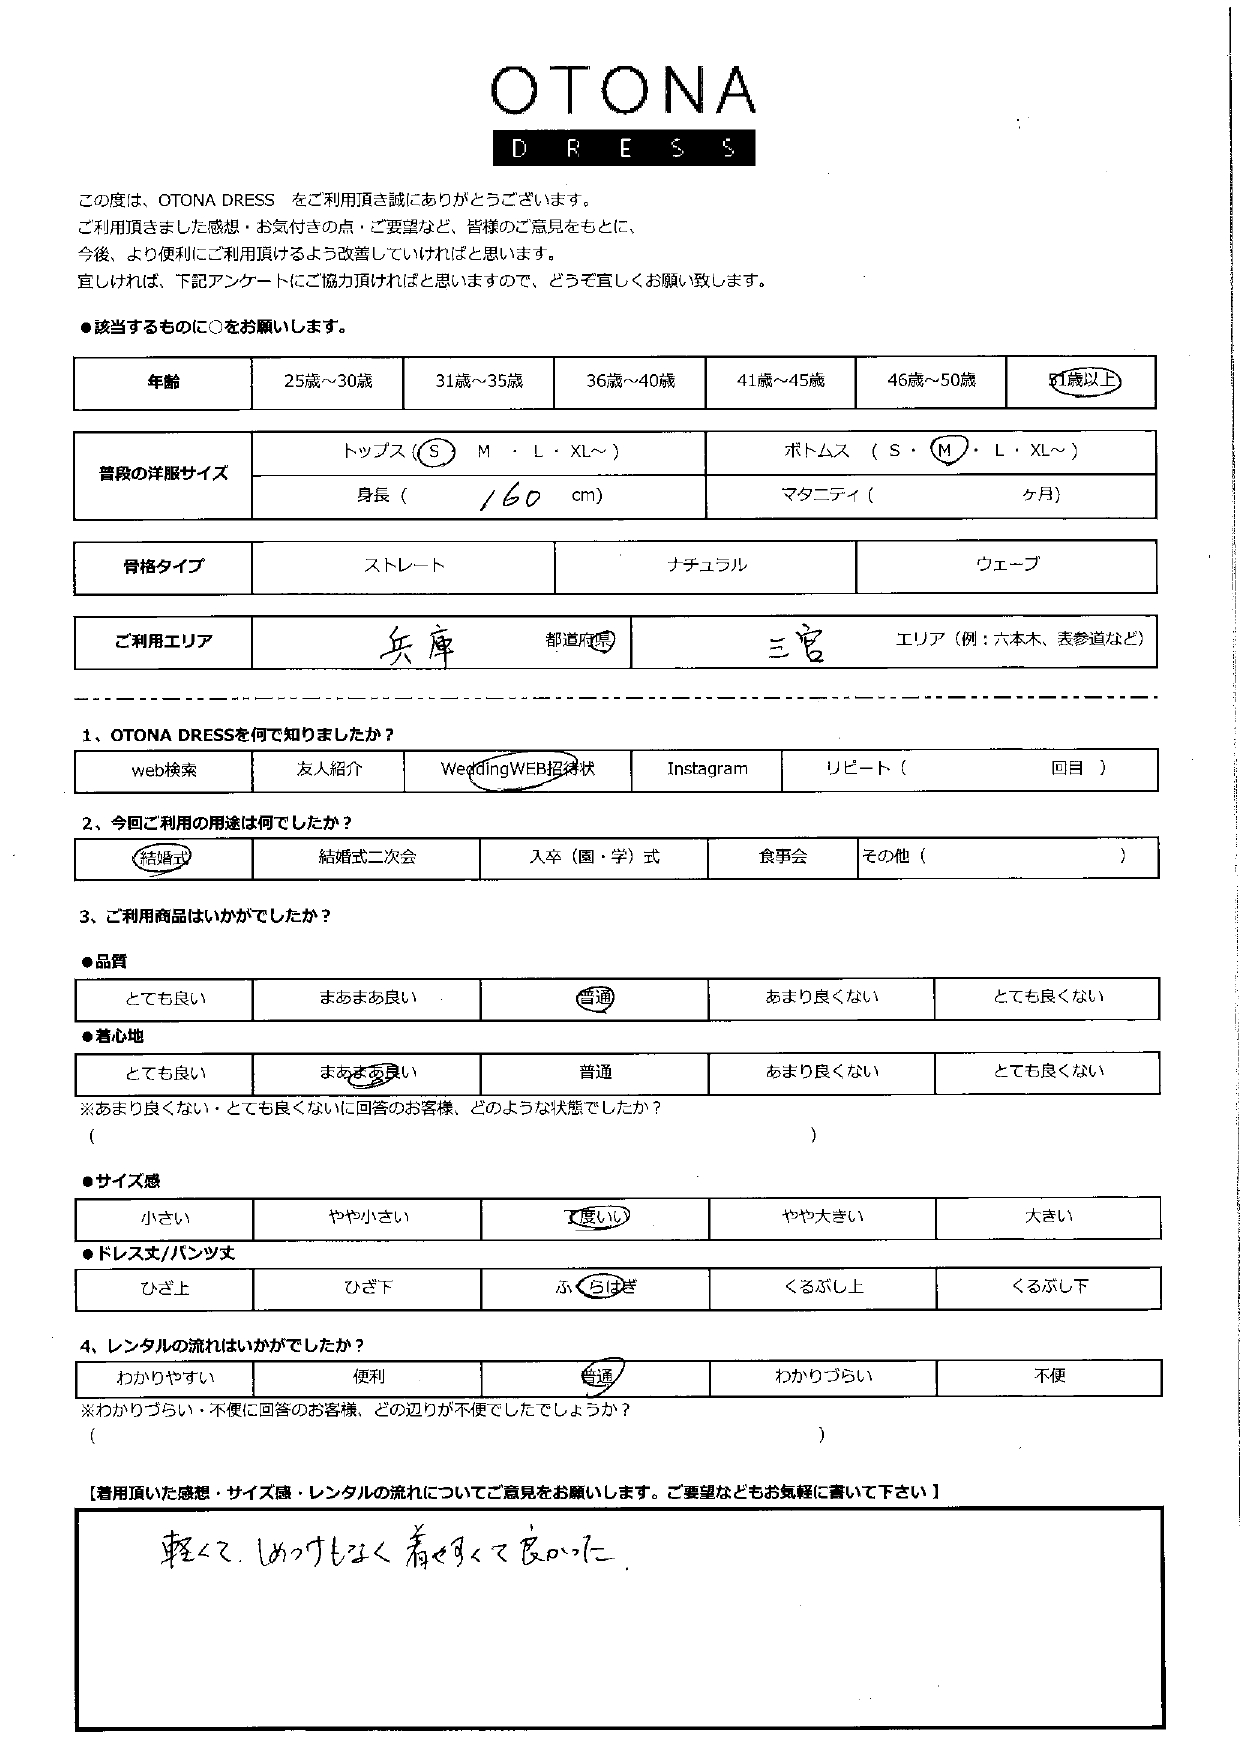 OTONA
DRESS
この度は、OTONA DRESS をご利用頂き誠にありがとうございます。
ご利用頂きました感想・お気付きの点・ご要望など、皆様のご意見をもとに、
今後、より便利にご利用頂けるよう改善していければと思います。
宜しければ、下記アンケートにご協力頂ければと思いますので、どうぞ宜しくお願い致します。
●該当するものに○をお願いします。
年齢 25歳～30歳 31歳～35歳 36歳～40歳 41歳～45歳 46歳～50歳 51歳以上
普段の洋服サイズ
トップス ( S M ・ L ・ XL～ ) ボトムス ( S ・ M ・ L ・ XL～ )
身長 ( 160 cm) マタニティ ( ヶ月)
骨格タイプ ストレート ナチュラル ウェーブ
ご利用エリア 兵庫 都道府県 三宮 エリア（例：六本木、表参道など）
1、OTONA DRESSを何で知りましたか？
web検索 友人紹介 WeddingWEB招待状 Instagram リピート ( 回目 )
2、今回ご利用の用途は何でしたか？
結婚式 結婚式二次会 入卒（園・学）式 食事会 その他 ( )
3、ご利用商品はいかがでしたか？
●品質
とても良い まあまあ良い 普通 あまり良くない とても良くない
●着心地
とても良い まあまあ良い 普通 あまり良くない とても良くない
※あまり良くない・とても良くないに回答のお客様、どのような状態でしたか？
( )
●サイズ感
小さい やや小さい 丁度いい やや大きい 大きい
●ドレス丈/パンツ丈
ひざ上 ひざ下 ふくらはぎ くるぶし上 くるぶし下
4、レンタルの流れはいかがでしたか？
わかりやすい 便利 普通 わかりづらい 不便
※わかりづらい・不便に回答のお客様、どの辺りが不便でしたでしょうか？
( )
【着用頂いた感想・サイズ感・レンタルの流れについてご意見をお願いします。ご要望などもお気軽に書いて下さい】
軽くて、しめつけもなく着やすくて良かった.